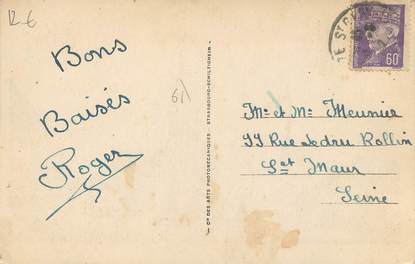 12.€
Bons
Baisés
Roger
61
Cie DES ARTS PHOTOMÉCANIQUES - STRASBOURG-SCHILTIGHEIM -
60c
Mr et Me Meunier
99 Rue Ledru Rollin
St Maur
Seine